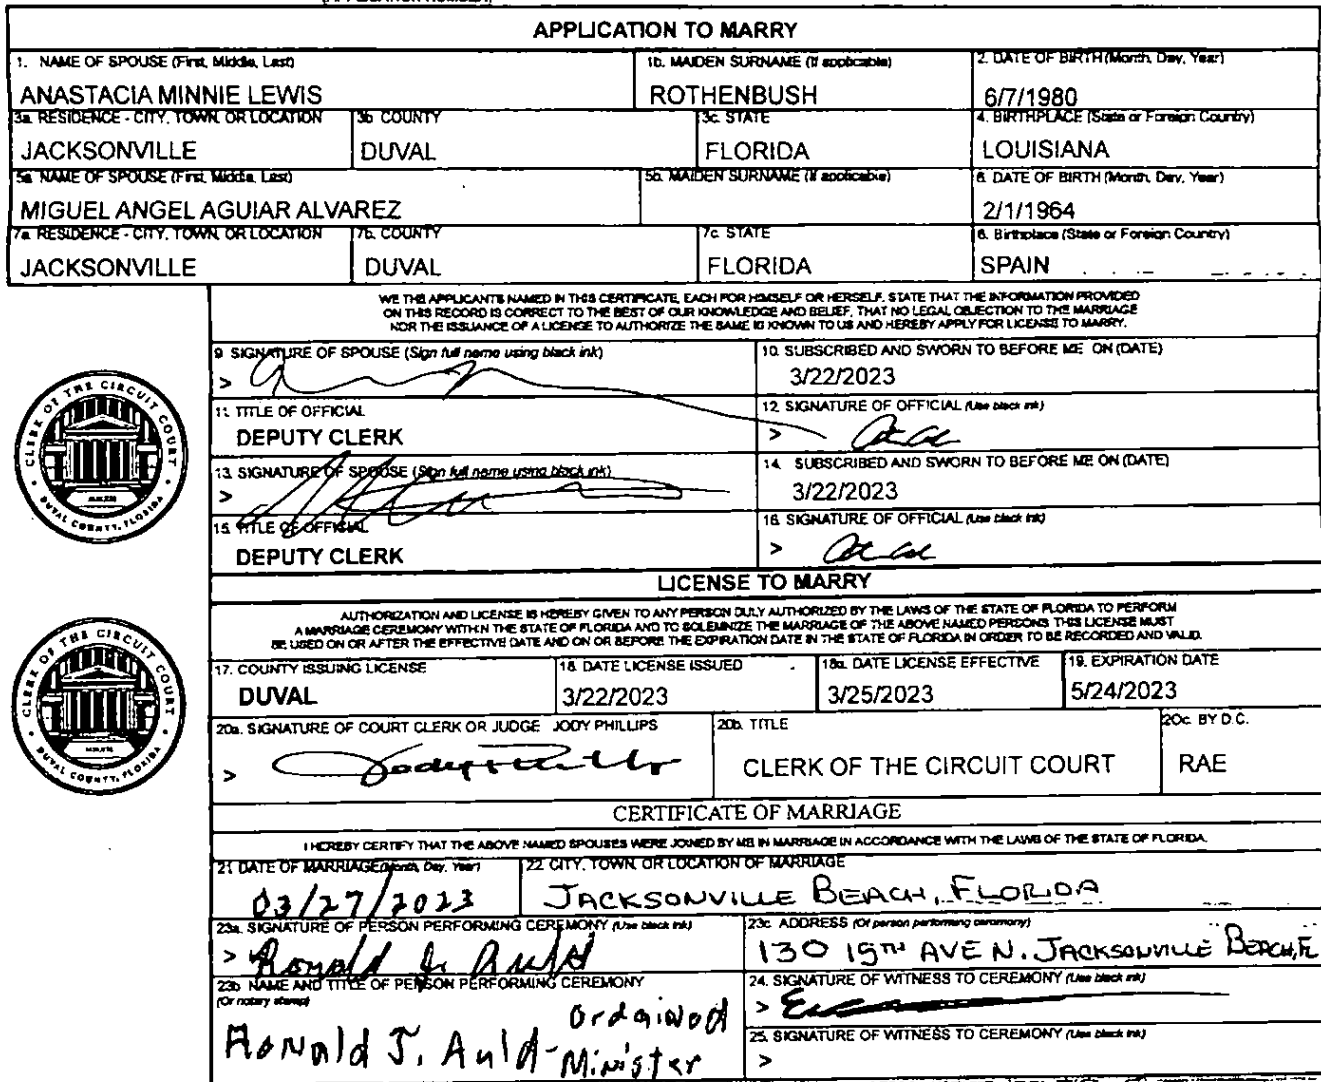 APPLICATION TO MARRY
1. NAME OF SPOUSE (First, Middle, Last) 1b. MAIDEN SURNAME (If applicable) 2. DATE OF BIRTH (Month, Day, Year)
ANASTACIA MINNIE LEWIS ROTHENBUSH 6/7/1980
3a. RESIDENCE - CITY, TOWN, OR LOCATION 3b. COUNTY 3c. STATE 4. BIRTHPLACE (State or Foreign Country)
JACKSONVILLE DUVAL FLORIDA LOUISIANA
5a. NAME OF SPOUSE (First, Middle, Last) 5b. MAIDEN SURNAME (If applicable) 6. DATE OF BIRTH (Month, Day, Year)
MIGUEL ANGEL AGUIAR ALVAREZ 2/1/1964
7a. RESIDENCE - CITY, TOWN, OR LOCATION 7b. COUNTY 7c. STATE 8. Birthplace (State or Foreign Country)
JACKSONVILLE DUVAL FLORIDA SPAIN
WE THE APPLICANTS NAMED IN THIS CERTIFICATE, EACH FOR HIMSELF OR HERSELF, STATE THAT THE INFORMATION PROVIDED
ON THIS RECORD IS CORRECT TO THE BEST OF OUR KNOWLEDGE AND BELIEF, THAT NO LEGAL OBJECTION TO THE MARRIAGE
NOR THE ISSUANCE OF A LICENSE TO AUTHORIZE THE SAME IS KNOWN TO US AND HEREBY APPLY FOR LICENSE TO MARRY.
9. SIGNATURE OF SPOUSE (Sign full name using black ink) 10. SUBSCRIBED AND SWORN TO BEFORE ME ON (DATE)
> 3/22/2023
11. TITLE OF OFFICIAL 12. SIGNATURE OF OFFICIAL (Use black ink)
DEPUTY CLERK >
13. SIGNATURE OF SPOUSE (Sign full name using black ink) 14. SUBSCRIBED AND SWORN TO BEFORE ME ON (DATE)
> 3/22/2023
15. TITLE OF OFFICIAL 16. SIGNATURE OF OFFICIAL (Use black ink)
DEPUTY CLERK >
CLERK OF THE CIRCUIT COURT
DUVAL COUNTY, FLORIDA
LICENSE TO MARRY
AUTHORIZATION AND LICENSE IS HEREBY GIVEN TO ANY PERSON DULY AUTHORIZED BY THE LAWS OF THE STATE OF FLORIDA TO PERFORM
A MARRIAGE CEREMONY WITHIN THE STATE OF FLORIDA AND TO SOLEMNIZE THE MARRIAGE OF THE ABOVE NAMED PERSONS THIS LICENSE MUST
BE USED ON OR AFTER THE EFFECTIVE DATE AND ON OR BEFORE THE EXPIRATION DATE IN THE STATE OF FLORIDA IN ORDER TO BE RECORDED AND VALID.
17. COUNTY ISSUING LICENSE 18. DATE LICENSE ISSUED 18a. DATE LICENSE EFFECTIVE 19. EXPIRATION DATE
DUVAL 3/22/2023 3/25/2023 5/24/2023
20a. SIGNATURE OF COURT CLERK OR JUDGE JODY PHILLIPS 20b. TITLE 20c. BY D.C.
> CLERK OF THE CIRCUIT COURT RAE
CLERK OF THE CIRCUIT COURT
DUVAL COUNTY, FLORIDA
CERTIFICATE OF MARRIAGE
I HEREBY CERTIFY THAT THE ABOVE NAMED SPOUSES WERE JOINED BY ME IN MARRIAGE IN ACCORDANCE WITH THE LAWS OF THE STATE OF FLORIDA.
21 DATE OF MARRIAGE (Month, Day, Year) 22 CITY, TOWN, OR LOCATION OF MARRIAGE
03/27/2023 JACKSONVILLE BEACH, FLORIDA
23a. SIGNATURE OF PERSON PERFORMING CEREMONY (Use black ink) 23c. ADDRESS (Of person performing ceremony)
> Ronald J. Auld 130 15TH AVE N. JACKSONVILLE BEACH, FL
23b. NAME AND TITLE OF PERSON PERFORMING CEREMONY 24. SIGNATURE OF WITNESS TO CEREMONY (Use black ink)
(Or notary stamp) >
Ronald J. Auld - Ordained Minister
25. SIGNATURE OF WITNESS TO CEREMONY (Use black ink)
>